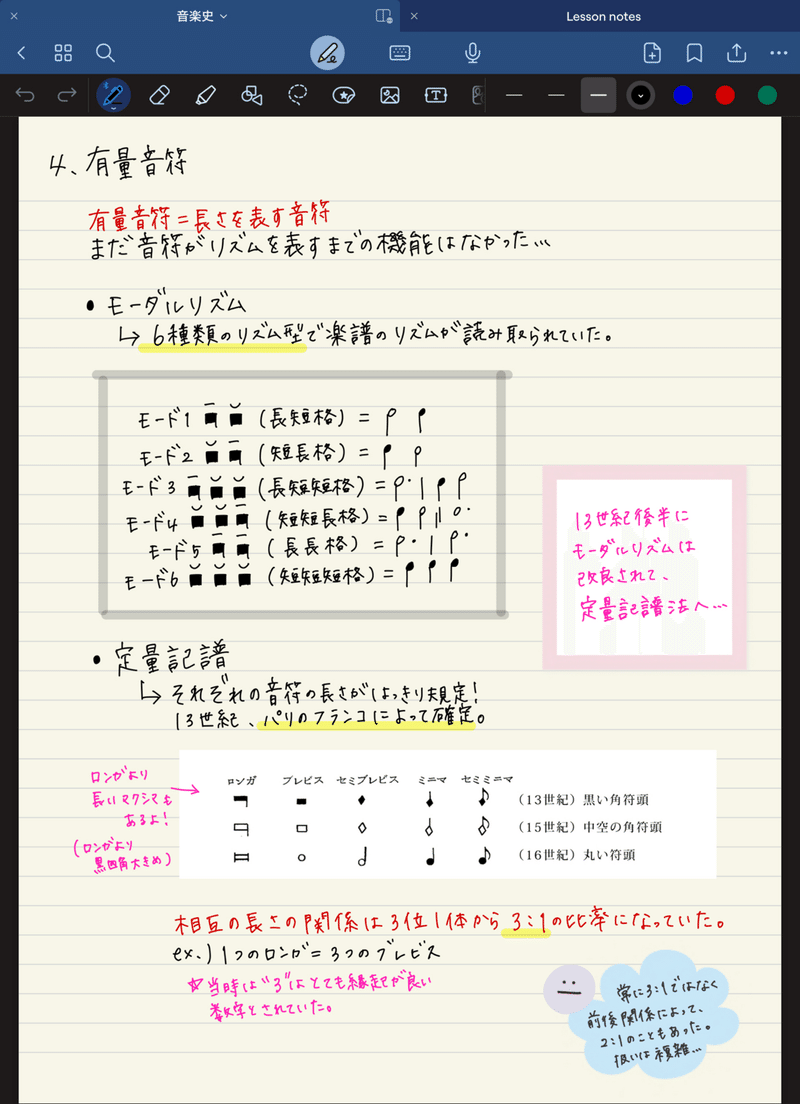 音楽史
Lesson notes
4、有量音符
有量音符＝長さを表す音符
まだ音符がリズムを表すまでの機能はなかった…
• モーダルリズム
↳ 6種類のリズム型で楽譜のリズムが読み取られていた。
モード1 (長短格) =
モード2 (短長格) =
モード3 (長短短格) =
モード4 (短短長格) =
モード5 (長長格) =
モード6 (短短短格) =
13世紀後半に
モーダルリズムは
改良されて、
定量記譜法へ…
• 定量記譜
↳ それぞれの音符の長さがはっきり規定!
13世紀、パリのフランコによって確定。
ロンガより
長いマクシマも
あるよ!
(ロンガより
黒四角大きめ)
ロンガ ブレビス セミブレビス ミニマ セミミニマ
（13世紀）黒い角符頭
（15世紀）中空の角符頭
（16世紀）丸い符頭
相互の長さの関係は3位1体から3:1の比率になっていた。
ex.) 1つのロンガ＝3つのブレビス
☆当時は"3"はとても縁起が良い
数字とされていた。
常に3:1ではなく
前後関係によって、
2:1のこともあった。
扱いは複雑…